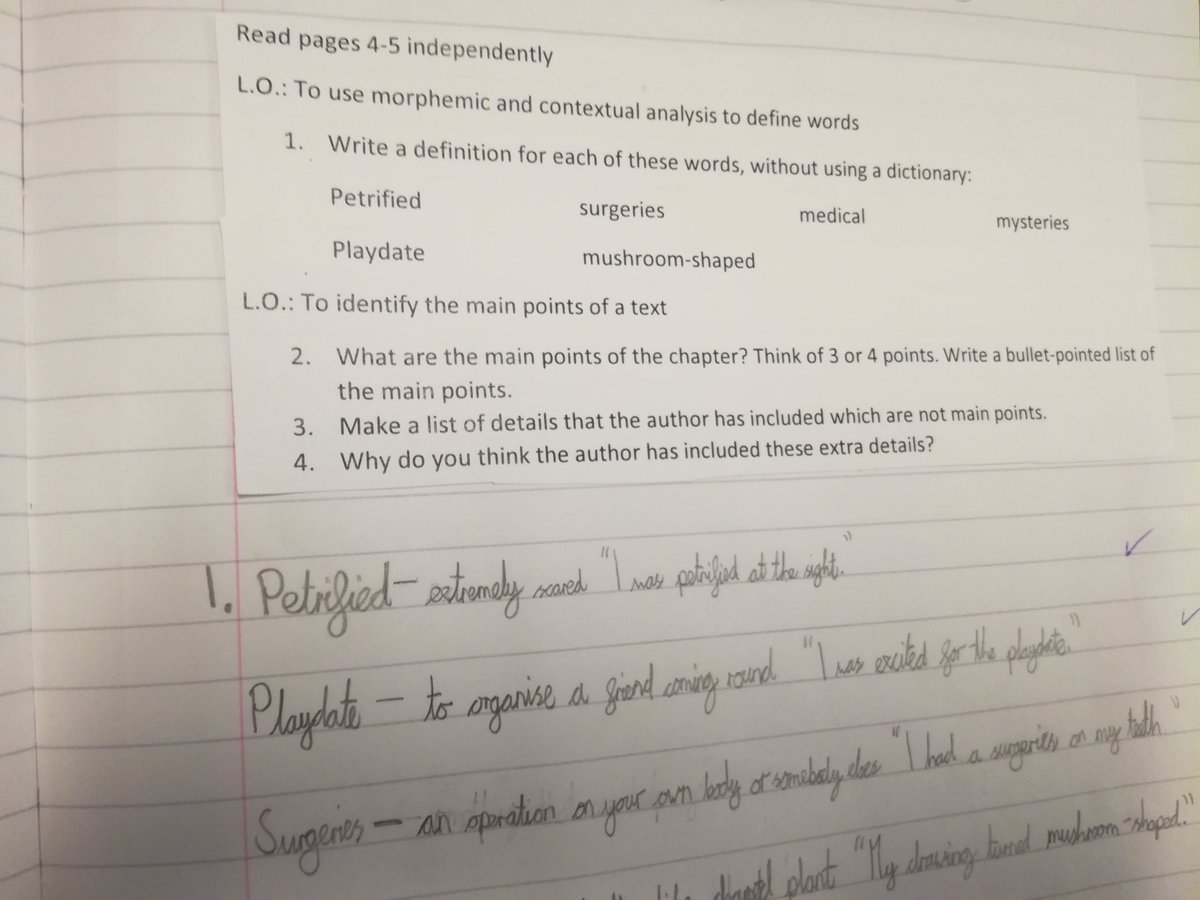 Read pages 4-5 independently
L.O.: To use morphemic and contextual analysis to define words
1. Write a definition for each of these words, without using a dictionary:
Petrified surgeries medical mysteries
Playdate mushroom-shaped
L.O.: To identify the main points of a text
2. What are the main points of the chapter? Think of 3 or 4 points. Write a bullet-pointed list of
the main points.
3. Make a list of details that the author has included which are not main points.
4. Why do you think the author has included these extra details?
1. Petrified - extremely scared "I was petrified at the sight."
Playdate - to organise a friend coming round "I was excited for the playdate."
Surgeries - an operation on your own body or somebody elses "I had a surgeries on my teeth"
plant "My drawing turned mushroom-shaped."